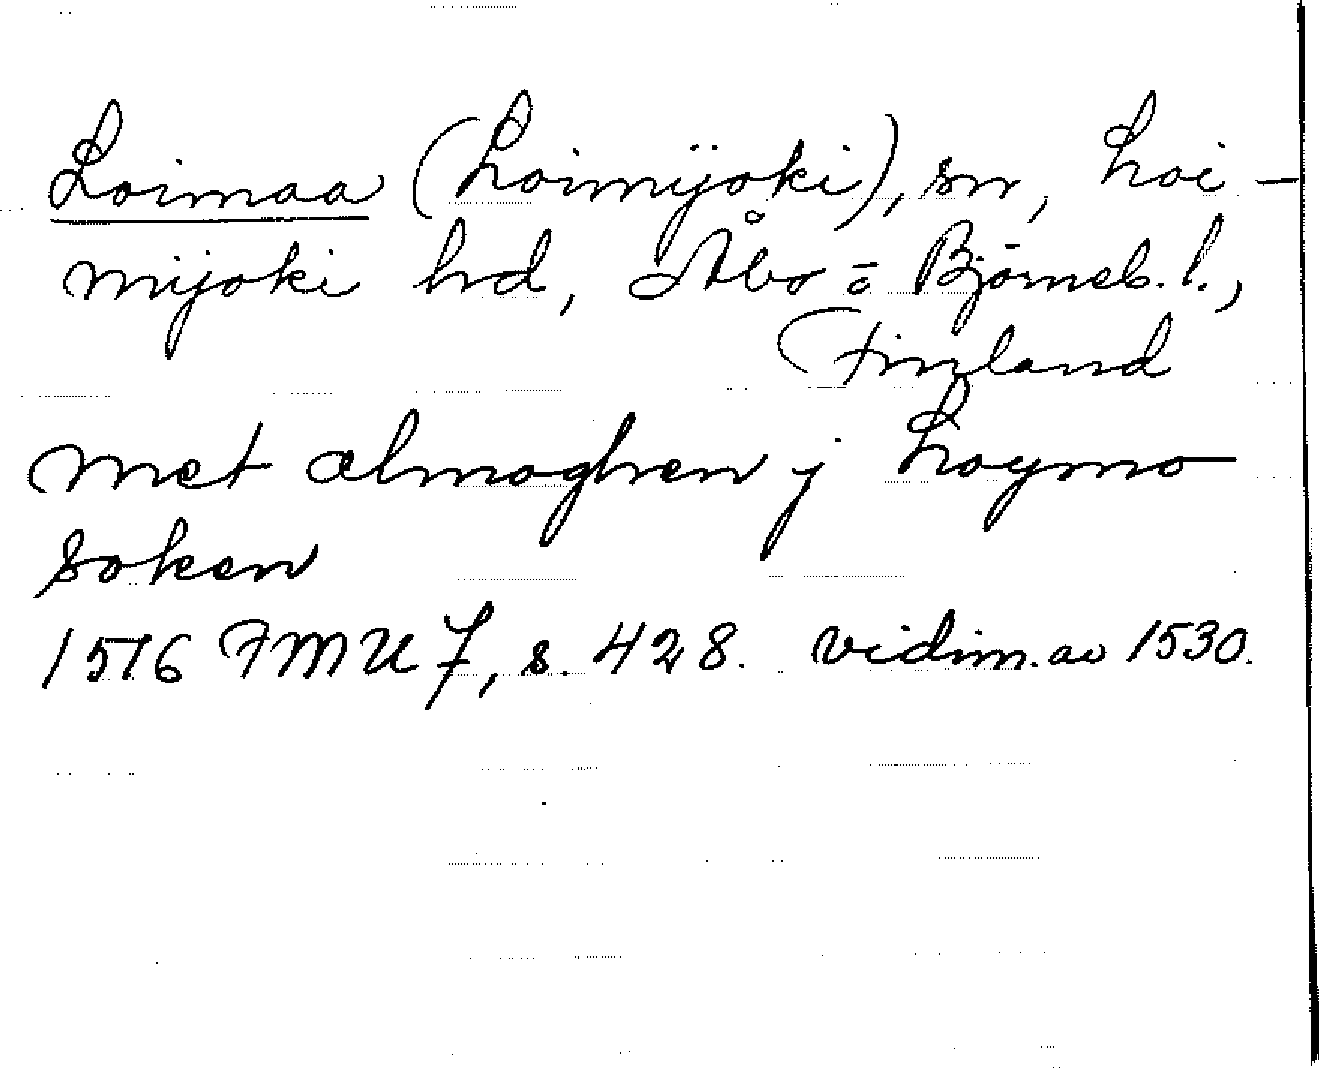 Loimaa (Loimijoki), sn, Loi-
mijoki hd, Åbo o Björneb. l.,
Finland
met almoghen j Loymo
Soken
1516 FMU 7, s. 428. Vidim. av 1530.